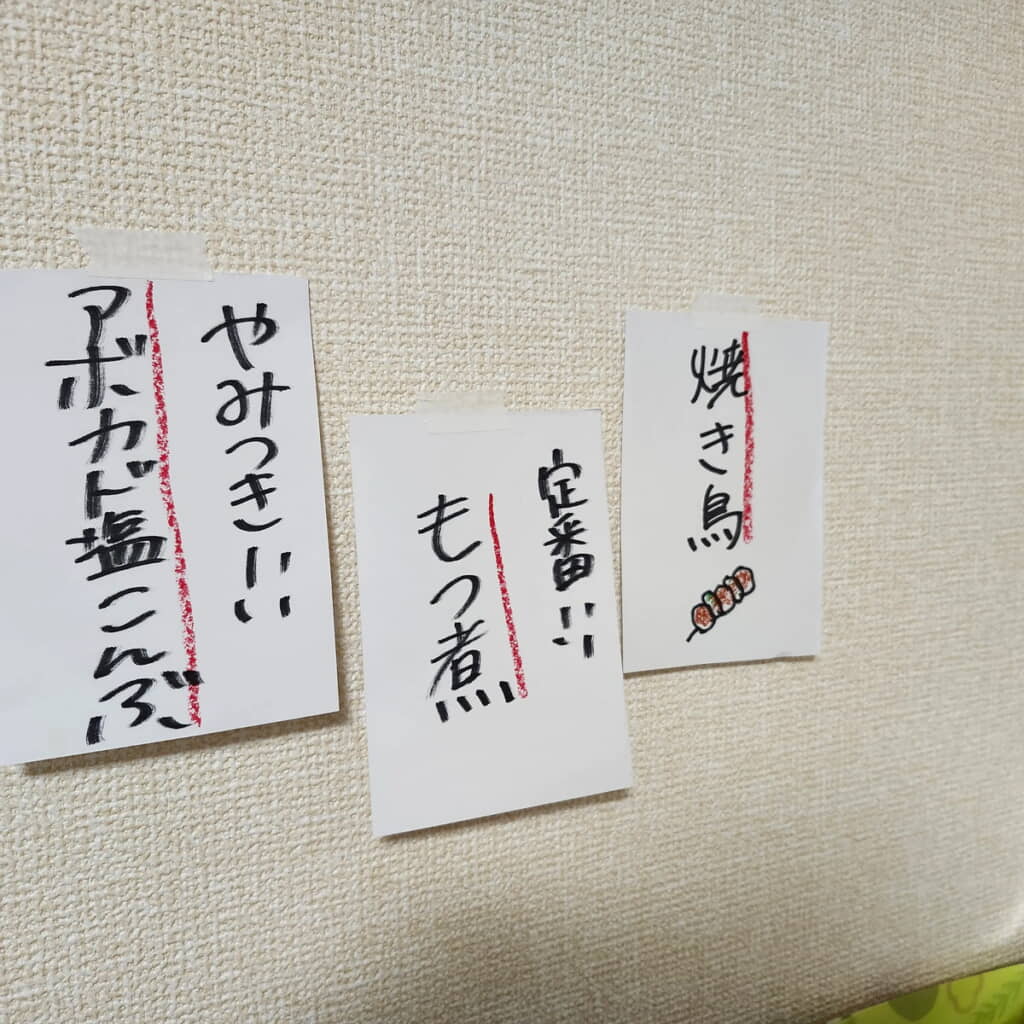 焼き鳥
定番!!
もつ煮
やみつき!!
アボカド塩こんぶ